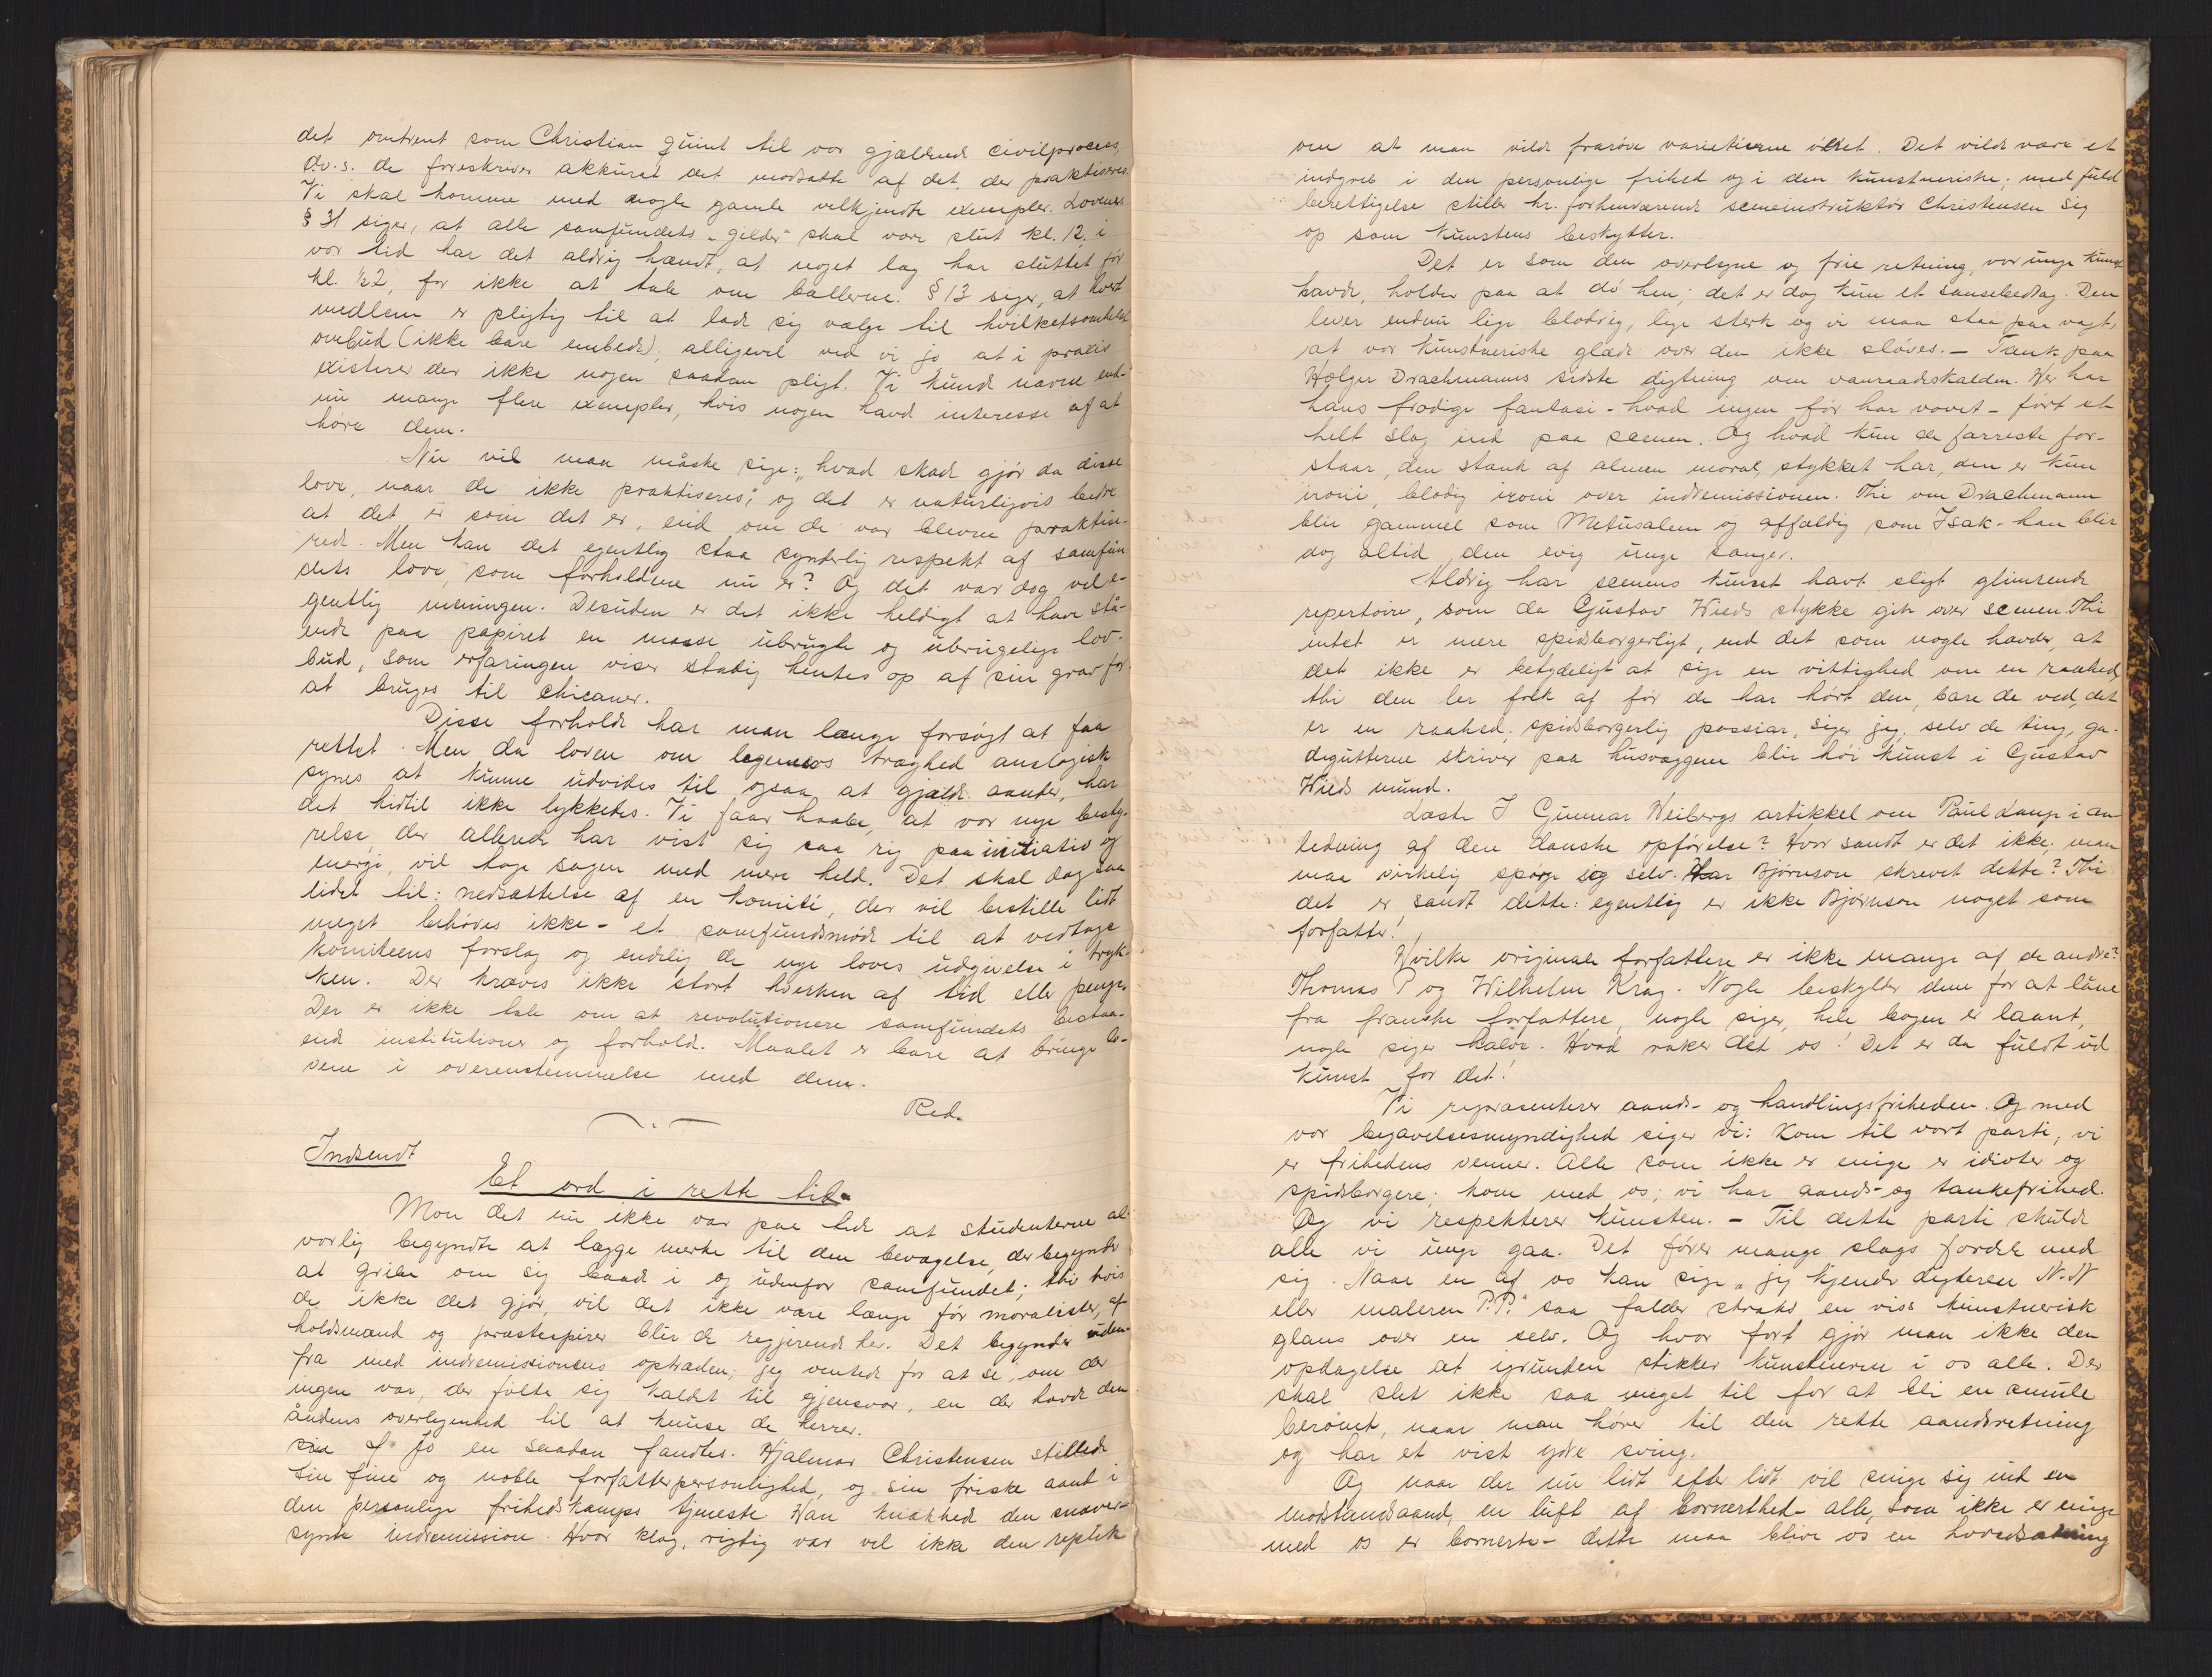 det omtrent som Christian quint til vor gjældende civilproces,
d.v.s. de foreskriver akkurat det modsatte af det, der praktiseres.
Vi skal komme med nogle gamle velkjendte exempler. Lovenes
§ 31 siger, at alle samfundets „gilder" skal være slut kl. 12, i
vor tid har det aldrig hændt, at noget lag har sluttet før
kl. ½2, for ikke at tale om ballerne. § 13 siger, at hvert
medlem er pligtig til at lade sig vælge til hvilketsomhelst
ombud (ikke bare embede); alligevel ved vi jo at i praxis
existerer der ikke nogen saadan pligt. Vi kunde nævne end-
nu mange flere exempler, hvis nogen havd interesse af at
høre dem.
Nu vil man måske sige: „hvad skade gjør da disse
love, naar de ikke praktiseres", og det er naturligvis bedre
at det er som det er, end om de var blevne praktise-
rede. Men kan det egentlig staa synderlig respekt af samfun
dets love, som forholdene nu er? Og det var dog vel e-
gentlig meningen. Desuden er det ikke heldigt at have stå-
ende paa papiret en masse ubrugte og ubrugelige lov-
bud, som erfaringen viser stadig hentes op af sin grav for
at bruges til chicaner.
Disse forholde har man længe forsøgt at faa
rettet. Men da loven om legemers træghed analogisk
synes at kunne udvides til ogsaa at gjælde aander, har
det hidtil ikke lykkedes. Vi faar haabe, at vor nye besty-
relse, der allerede har vist sig saa rig paa initiativ og
energi, vil tage sagen med mere held. Det skal dog saa
lidet til: nedsættelse af en komité, der vil bestille lidt
meget behøves ikke - et samfundsmøde til at vedtage
komiteens forslag og endelig de nye loves udgivelse i tryk-
ken. Der kræves ikke stort hverken af tid eller penge.
Der er ikke tale om at revolutionere samfundets bestaa-
ende institutioner og forhold. Maalet er bare at bringe lo-
vene i overensstemmelse med dem.
Red.
Indsendt
Et ord i rette tid.
Mon det nu ikke var paa tide at studenterne al-
vorlig begyndte at lægge merke til den bevægelse, der begynder
at gribe om sig baade i og udenfor samfundet; thi hvis
de ikke det gjør, vil det ikke være længe før moralister, af-
holdsmænd og præstespirer blir de regjerende her. Det begynder uden-
fra med indremissionens optræden; jeg ventede for at se, om der
ingen var, der følte sig kaldt til gjensvar, en der havde den
åndens overlegenhed til at knuse de herrer.
Jo en saadan fandtes. Hjalmar Christensen stillede
sin fine og noble forfatterpersonlighed, og sin friske aand i
den personlige frihedskamps tjeneste Han knækkede den snever-
synte indremission. Hvor klog, rigtig var vel ikke den replik
om at man vilde frarøve varieteerne øllet. Det vilde være et
indgreb i den personlige frihed og i den kunstneriske; med fuld
berettigelse stiller hr. forhenværende sceneinstruktør Christensen sig
op som kunstens beskytter.
Det er som den overlegne og frie retning, vor unge kunst
havde, holder paa at dø hen; det er dog kun et sansebedrag. Den
lever endnu lige blodrig, lige sterk og vi maa staa paa vagt,
at vor kunstneriske glæde over den ikke sløves. - Tænk paa
Holger Drachmanns sidste digtning om vanraadskalden. Her har
hans frodige fantasi - hvad ingen før har vovet - ført et
helt slag ind paa scenen. Og hvad kun de færreste for-
staar, den stank af almen moral, stykket har, den er kun
ironi, blodig ironi over indremissionen. Thi om Drachmann
blir gammel som Metusalem og affældig som Isak - han blir
dog altid den evig unge sanger.
Aldrig har scenens kunst havt sligt glimrende
repertoire, som da Gustav Wieds stykke gik over scenen. Thi
intet er mere spidsborgerligt, end det som nogle hævder, at
det ikke er betydeligt at sige en vittighed om en raahed,
thi den ler folk af før de har hørt den, bare de ved, det
er en raahed; spidsborgerlig passiar, siger jeg, selv de ting, ga-
degutterne skriver paa husvæggene blir høi kunst i Gustav
Wieds mund.
Læste I Gunnar Heibergs artikkel om Paul Lange i an-
ledning af den danske opførelse? Hvor sandt er det ikke, man
maa virkelig spørge sig selv. Har Bjørnson skrevet dette? Thi
det er sandt dette: egentlig er ikke Bjørnson noget som
forfatter!
Hvilke originale forfattere er ikke mange af de andre?
Thomas P og Wilhelm Krag. Nogle beskylder dem for at låne
fra franske forfattere, nogle siger, hele bogen er laant,
nogle siger halve. Hvad raker det os! Det er da fuldt ud
kunst for det!
Vi repræsenterer aands- og handlingsfriheden. Og med
vor begavelsesmyndighed siger vi: Kom til vort parti, vi
er frihedens venner. Alle som ikke er enige er idioter og
spidsborgere; kom med os; vi har aands- og tankefrihed.
Og vi respekterer kunsten. - Til dette parti skulde
alle vi unge gaa. Det fører mange slags fordele med
sig. Naar en af os kan sige „jeg kjender digteren N.N
eller maleren P.P." saa falder straks en viss kunstnerisk
glans over en selv. Og hvor fort gjør man ikke den
opdagelse at igrunden stikker kunstneren i os alle. Der
skal slet ikke saa meget til for at bli en smule
berømt, naar man hører til den rette aandsretning
og har et vist ydre sving.
Og naar der nu lidt efter lidt vil snige sig ind en
modstandsaand, en luft af bornerthed - alle, som ikke er enige
med os er bornerte - dette maa blive os en hovedsætning